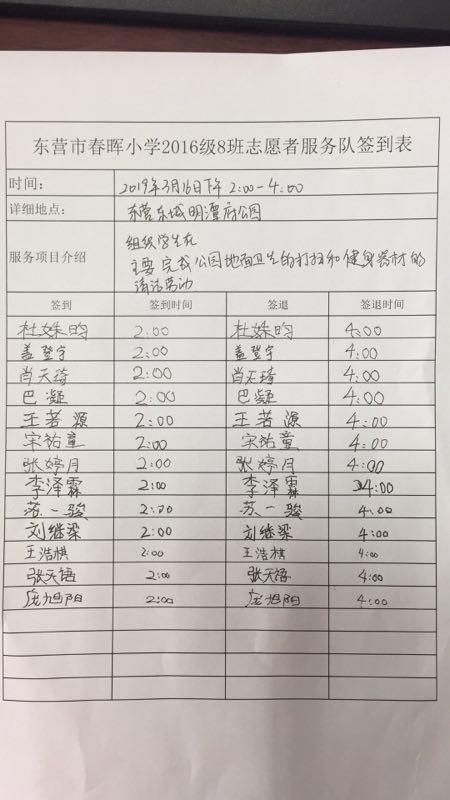 东营市春晖小学2016级8班志愿者服务队签到表
时间： 2019年3月16日下午 2:00-4:00
详细地点： 东营东城明潭府公园
服务项目介绍 组织学生在
主要完成公园地面卫生的打扫和健身器材的
清洁劳动
签到 签到时间 签退 签退时间
杜姝昀 2:00 杜姝昀 4:00
盖登宇 2:00 盖登宇 4:00
肖天琦 2:00 肖天琦 4:00
巴凝 2:00 巴凝 4:00
王若源 2:00 王若源 4:00
宋祐童 2:00 宋祐童 4:00
张婷月 2:00 张婷月 4:00
李泽霖 2:00 李泽霖 4:00
苏一骏 2:00 苏一骏 4:00
刘继梁 2:00 刘继梁 4:00
王浩棋 2:00 王浩棋 4:00
张天语 2:00 张天语 4:00
庞旭阳 2:00 庞旭阳 4:00